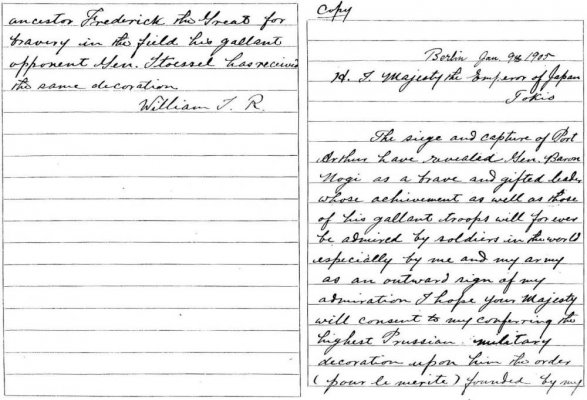 Copy
Berlin Jan. 9th 1905
H. I. Majesty the Emperor of Japan
Tokio
The siege and capture of Port
Arthur have revealed Gen. Baron
Nogi as a brave and gifted leader
whose achievement as well as those
of his gallant troops will for ever
be admired by soldiers in the world
especially by me and my army
as an outward sign of my
admiration I hope your Majesty
will consent to my conferring the
highest Prussian military
decoration upon him the order
(pour le merite) founded by my
ancestor Frederick the Great for
bravery in the field his gallant
opponent Gen. Stoessel has received
the same decoration
William I. R.